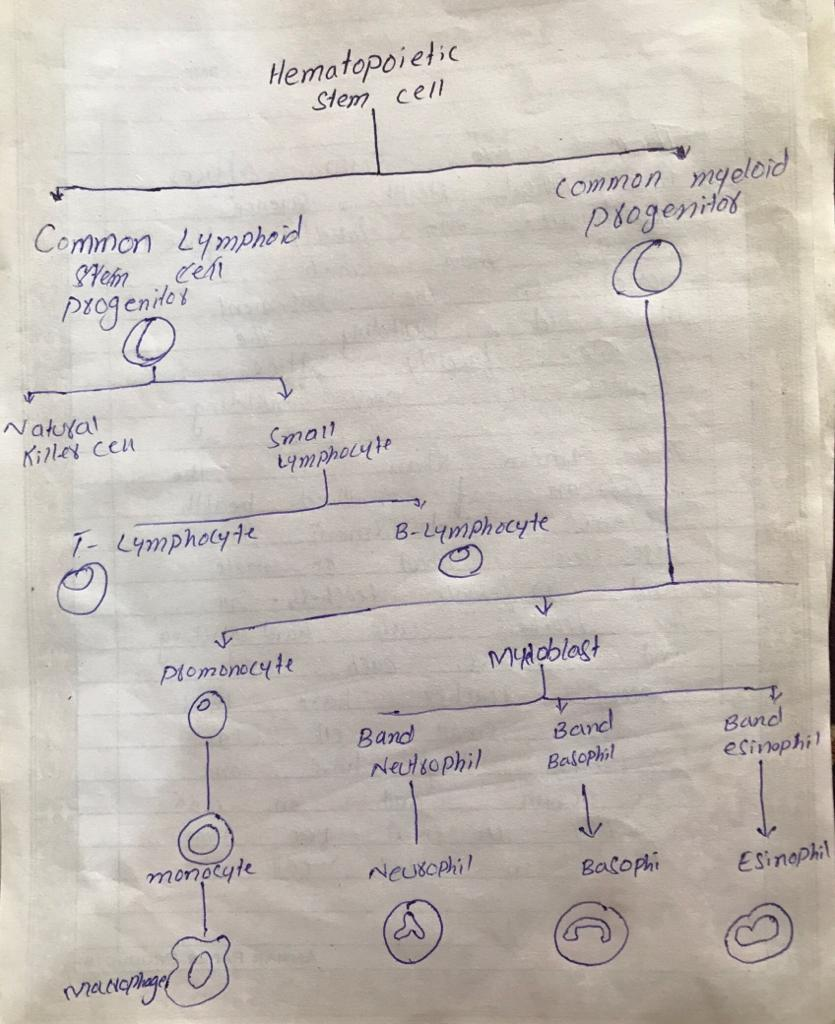 Hematopoietic
Stem cell
Common myeloid
Progenitor
Common Lymphoid
Stem cell
Progenitor
Natural
Killer cell
Small
Lymphocyte
T- Lymphocyte
B-Lymphocyte
Promonocyte
Myloblast
Band
Neutrophil
Band
Basophil
Band
esinophil
monocyte
Neurophil
Basophi
Esinophil
Macrophages